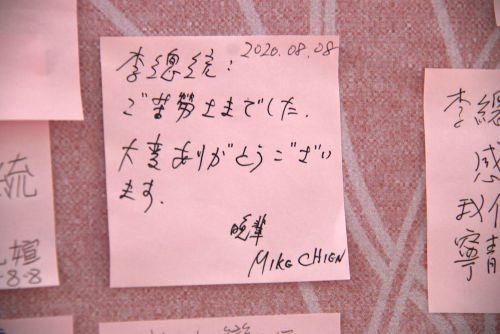 2020.08.08
李總統：
ご苦勞土までした.
大変ありがとうござい
ます.
晚輩
MIKE CHIEN
流
8-8
李總
感
我们
寧靑